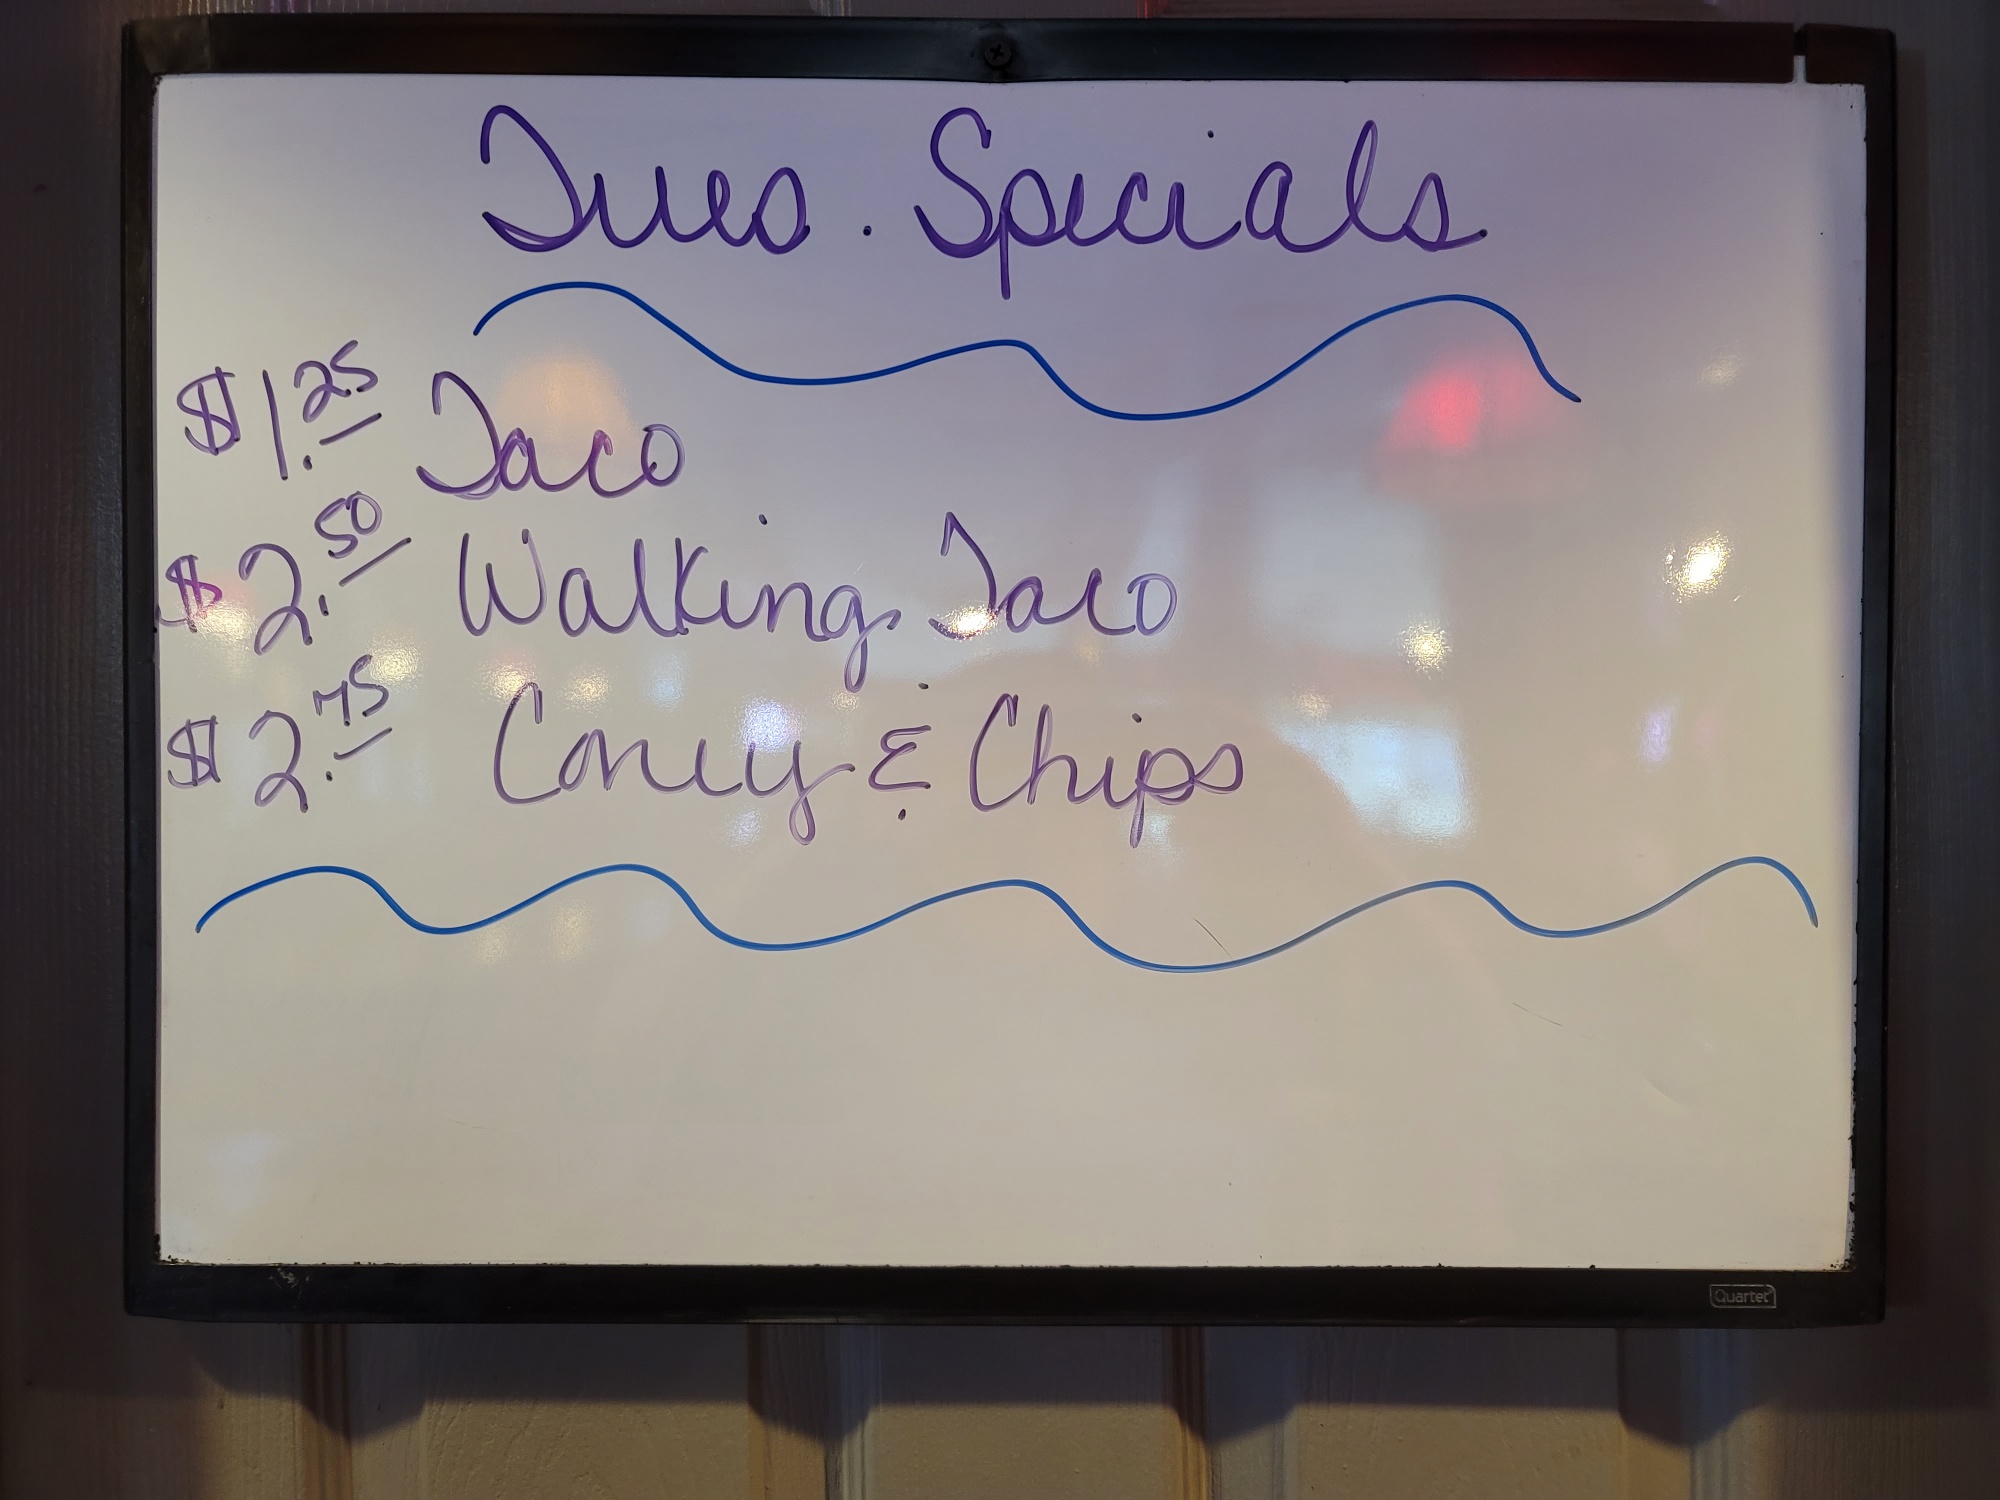 Tues. Specials
$1.25 Taco
$2.50 Walking Taco
$2.75 Coney & Chips
Quartet